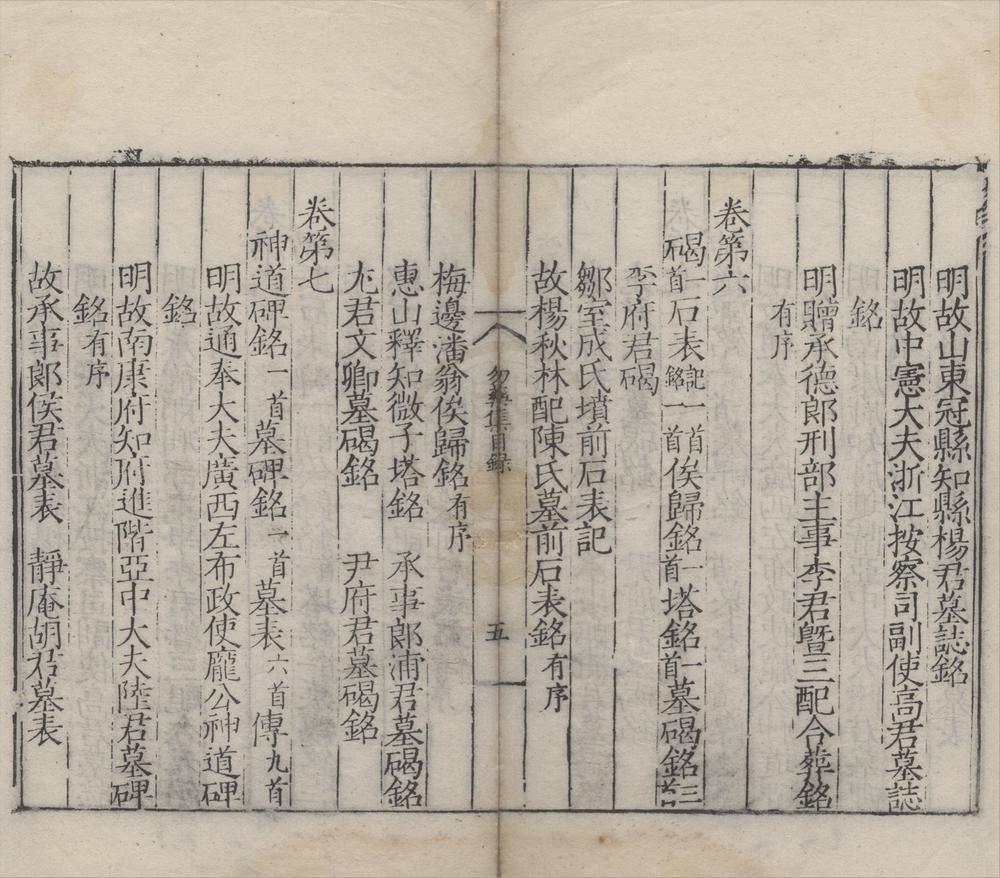 明故山東冠縣知縣楊君墓誌銘
明故中憲大夫浙江按察司副使高君墓誌
銘
明贈承德郎刑部主事李君暨三配合葬銘
有序
卷第六
碣一首石表記一首銘一首俟歸銘一首塔銘一首墓碣銘三首
李府君碣
鄒室成氏墳前石表記
故楊秋林配陳氏墓前石表銘有序
集目録
五
梅邊潘翁俟歸銘有序
惠山釋知微子塔銘 承事郎浦君墓碣銘
尤君文卿墓碣銘 尹府君墓碣銘
卷第七
神道碑銘一首墓碑銘一首墓表六首傳九首
明故通奉大夫廣西左布政使龐公神道碑
銘
明故南康府知府進階亞中大夫陸君墓碑
銘有序
故承事郎侯君墓表 靜庵胡君墓表